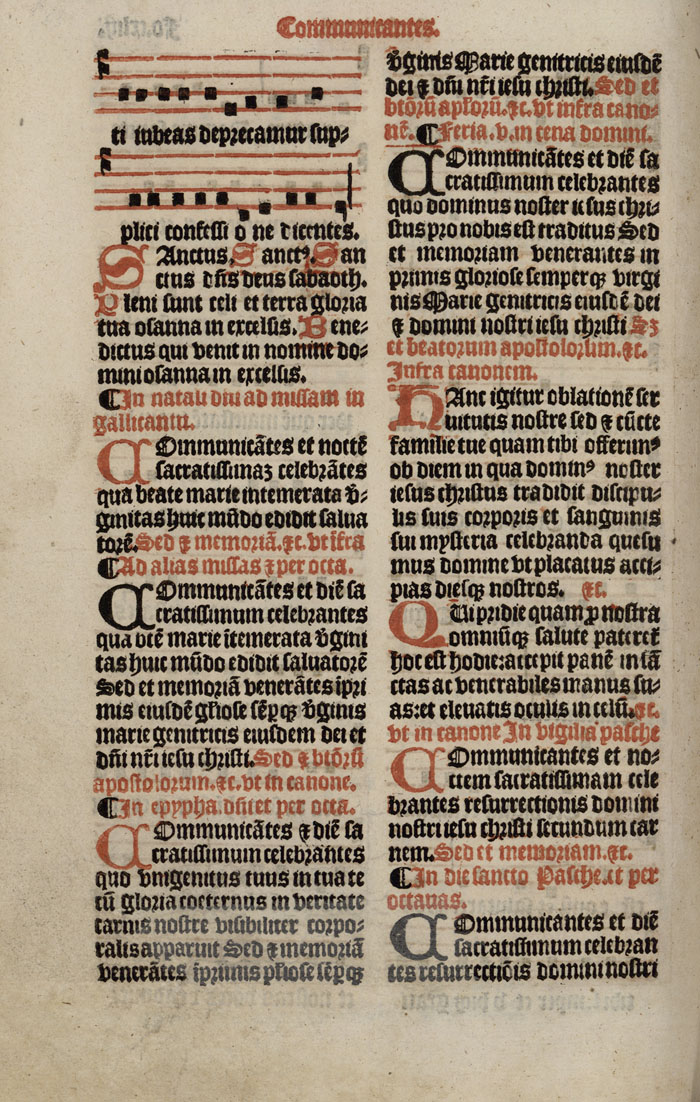 Communicantes.
ti iubeas deprecamur sup⸗
plici confessi o ne dicentes.
SAnctus. Sanctꝰ. San
ctus dñs deus sabaoth.
Pleni sunt celi et terra gloria
tua osanna in excelsis. Bene⸗
dictus qui venit in nomine do⸗
mini osanna in excelsis.
¶In natali dñi ad missam in
gallicantu.
COmmunicãtes et noctẽ
sacratissimaʒ celebrãtes
qua beate marie intemerata v̾⸗
ginitas huic mũdo edidit salua
torẽ. Sed ⁊ memoriã.⁊c. vt ĩfra
¶Ad alias missas ⁊ per octa.
COmmunicãtes et diẽ sa
cratissimum celebrantes
qua btẽ marie ĩtemerata v̾gini
tas huic mũdo edidit saluatorẽ
Sed et memoriã venerãtes ĩpri
mis eiusdẽ gl̃iose sẽpqꝫ v̾ginis
marie genitricis eiusdem dei et
dñi nr̃i iesu christi. Sed ⁊ btõrũ
apostolorum.⁊c. vt in canone.
¶In epypha. dñi et per octa.
COmmunicãtes ⁊ diẽ sa
cratissimum celebrantes
quo vnigenitus tuus in tua te
cũ gloria coeternus in veritate
carnis nostre visibiliter corpo⸗
ralis apparuit Sed ⁊ memoriã
venerãtes ĩprimis gl̃iose sẽpqꝫ
v̾ginis Marie genitricis eiusdẽ
dei ⁊ dñi nr̃i iesu christi. Sed et
btõrũ apl̃orũ.⁊c. vt infra cano⸗
nẽ. ¶Feria.v. in cena domini.
COmmunicãtes et diẽ sa
cratissimum celebrantes
quo dominus noster iesus chri⸗
stus pro nobis est traditus Sed
et memoriam venerantes in
primis gloriose semperqꝫ virgi
nis Marie genitricis eiusdẽ dei
⁊ domini nostri iesu christi Sꝫ
et beatorum apostolorum.⁊c.
Infra canonem.
HAnc igitur oblationẽ ser
uitutis nostre sed ⁊ cũcte
familie tue quam tibi offerimꝰ
ob diem in qua dominꝰ noster
iesus christus tradidit discipu⸗
lis suis corporis et sanguinis
sui mysteria celebranda quesu
mus domine vt placatus acci⸗
pias diesqꝫ nostros. ⁊c.
QUi pridie quam ꝓ nostra
omniũqꝫ salute pateret̃
hoc est hodie:accepit panẽ in sã
ctas ac venerabiles manus su⸗
as:et eleuatis oculis in celũ.⁊c.
vt in canone In vigilia pasche
COmmunicantes et no⸗
ctem sacratissimam cele
brantes resurrectionis domini
nostri iesu christi secundum car
nem. Sed et memoriam.⁊c.
¶In die sancto Pasche.et per
octauas.
COmmunicantes et diẽ
sacratissimum celebran
tes resurrectiõis domini nostri